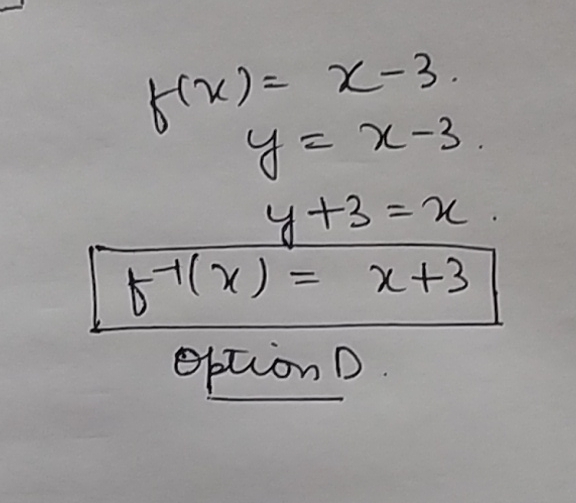 f(x) = x-3.
y = x-3.
y+3 = x.
f⁻¹(x) = x+3
Option D.